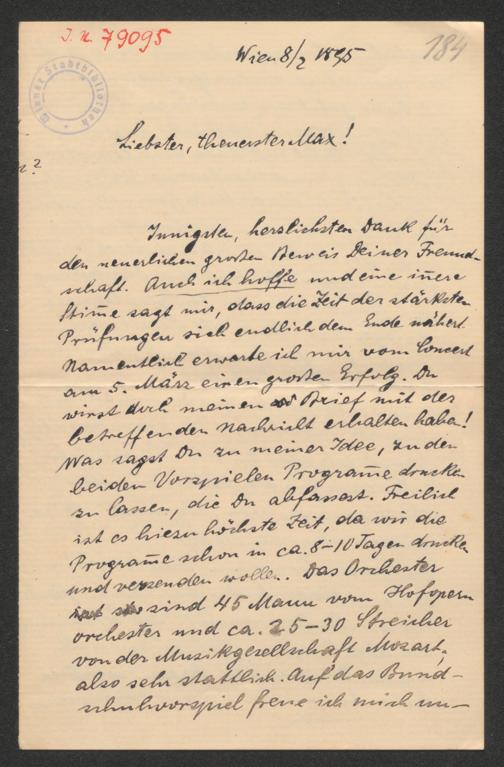 J. N. 79095
184
Wiener Stadtbibliothek
Wien 8/2 1895
Liebster, theuerster Max!
Innigsten, herzlichsten Dank für
den neuerlichen großen Beweis Deiner Freund-
schaft. Auch ich hoffe und eine in̅ere
Stim̅e sagt mir, dass die Zeit der stärksten
Prüfungen sich endlich dem Ende nähert.
Namentlich erwarte ich mir vom Concert
am 5. März einen großen Erfolg. Du
wirst doch meinen Brief mit der
betreffenden Nachricht erhalten haben!
Was sagst Du zu meiner Idee, zu den
beiden Vorspielen Program̅e drucken
zu lassen, die Du abfassest. Freilich
ist es hiezu höchste Zeit, da wir die
Program̅e schon in ca. 8-10 Tagen drucken
und versenden wollen. Das Orchester
sind 45 Mann vom Hofopern
orchester und ca. 25-30 Streicher
von der Musikgesellschaft Mozart,
also sehr stattlich. Auf das Bund-
schuhvorspiel freue ich mich un-